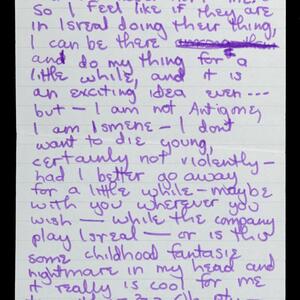 So I feel like if they are
in Isreal doing their thing,
I can be there
and do my thing for a
little while, and it is
an exciting idea even ---
but - I am not Antigone,
I am Ismene - I don't
want to die young,
certainly not violently -
had I better go away
for a little while - maybe
with you wherever you
wish - while the company
play Isreal - or is this
some childhood fantasie
nightmare in my head and
it really is cool for me